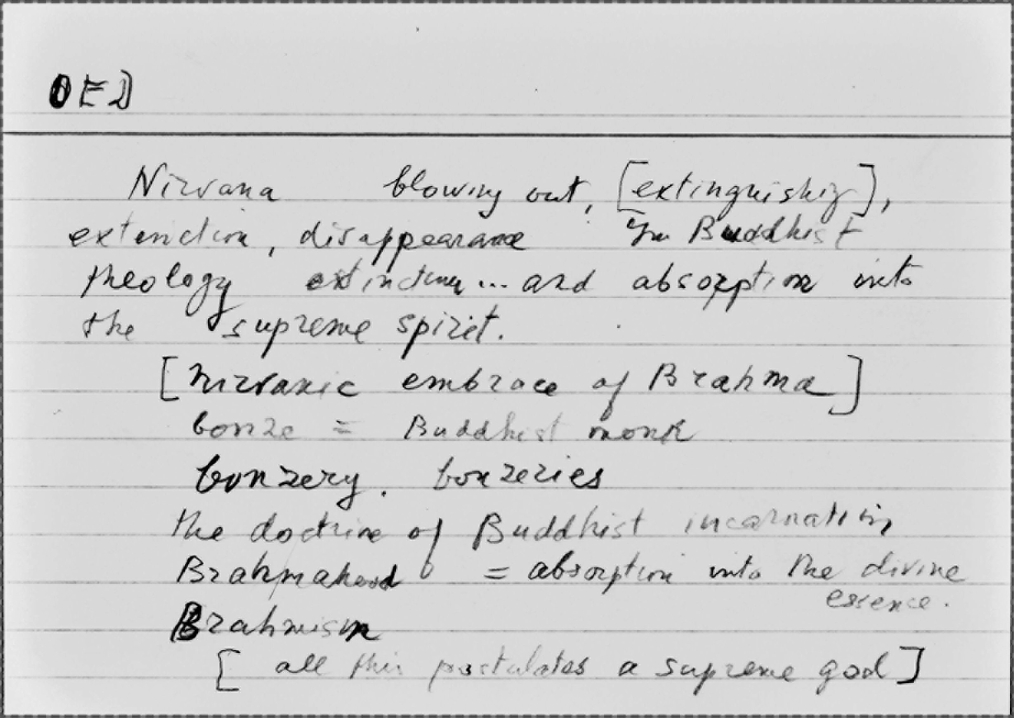 OED
Nirvana blowing out, [extinguishing],
extinction, disappearance In Buddhist
theology extinction ... and absorption into
the supreme spirit.
[Nirvanic embrace of Brahma]
bonze = Buddhist monk
bonzery. bonzeries
the doctrine of Buddhist incarnation
Brahmahood = absorption into the divine
essence.
Brahmism
[ all this postulates a supreme god ]